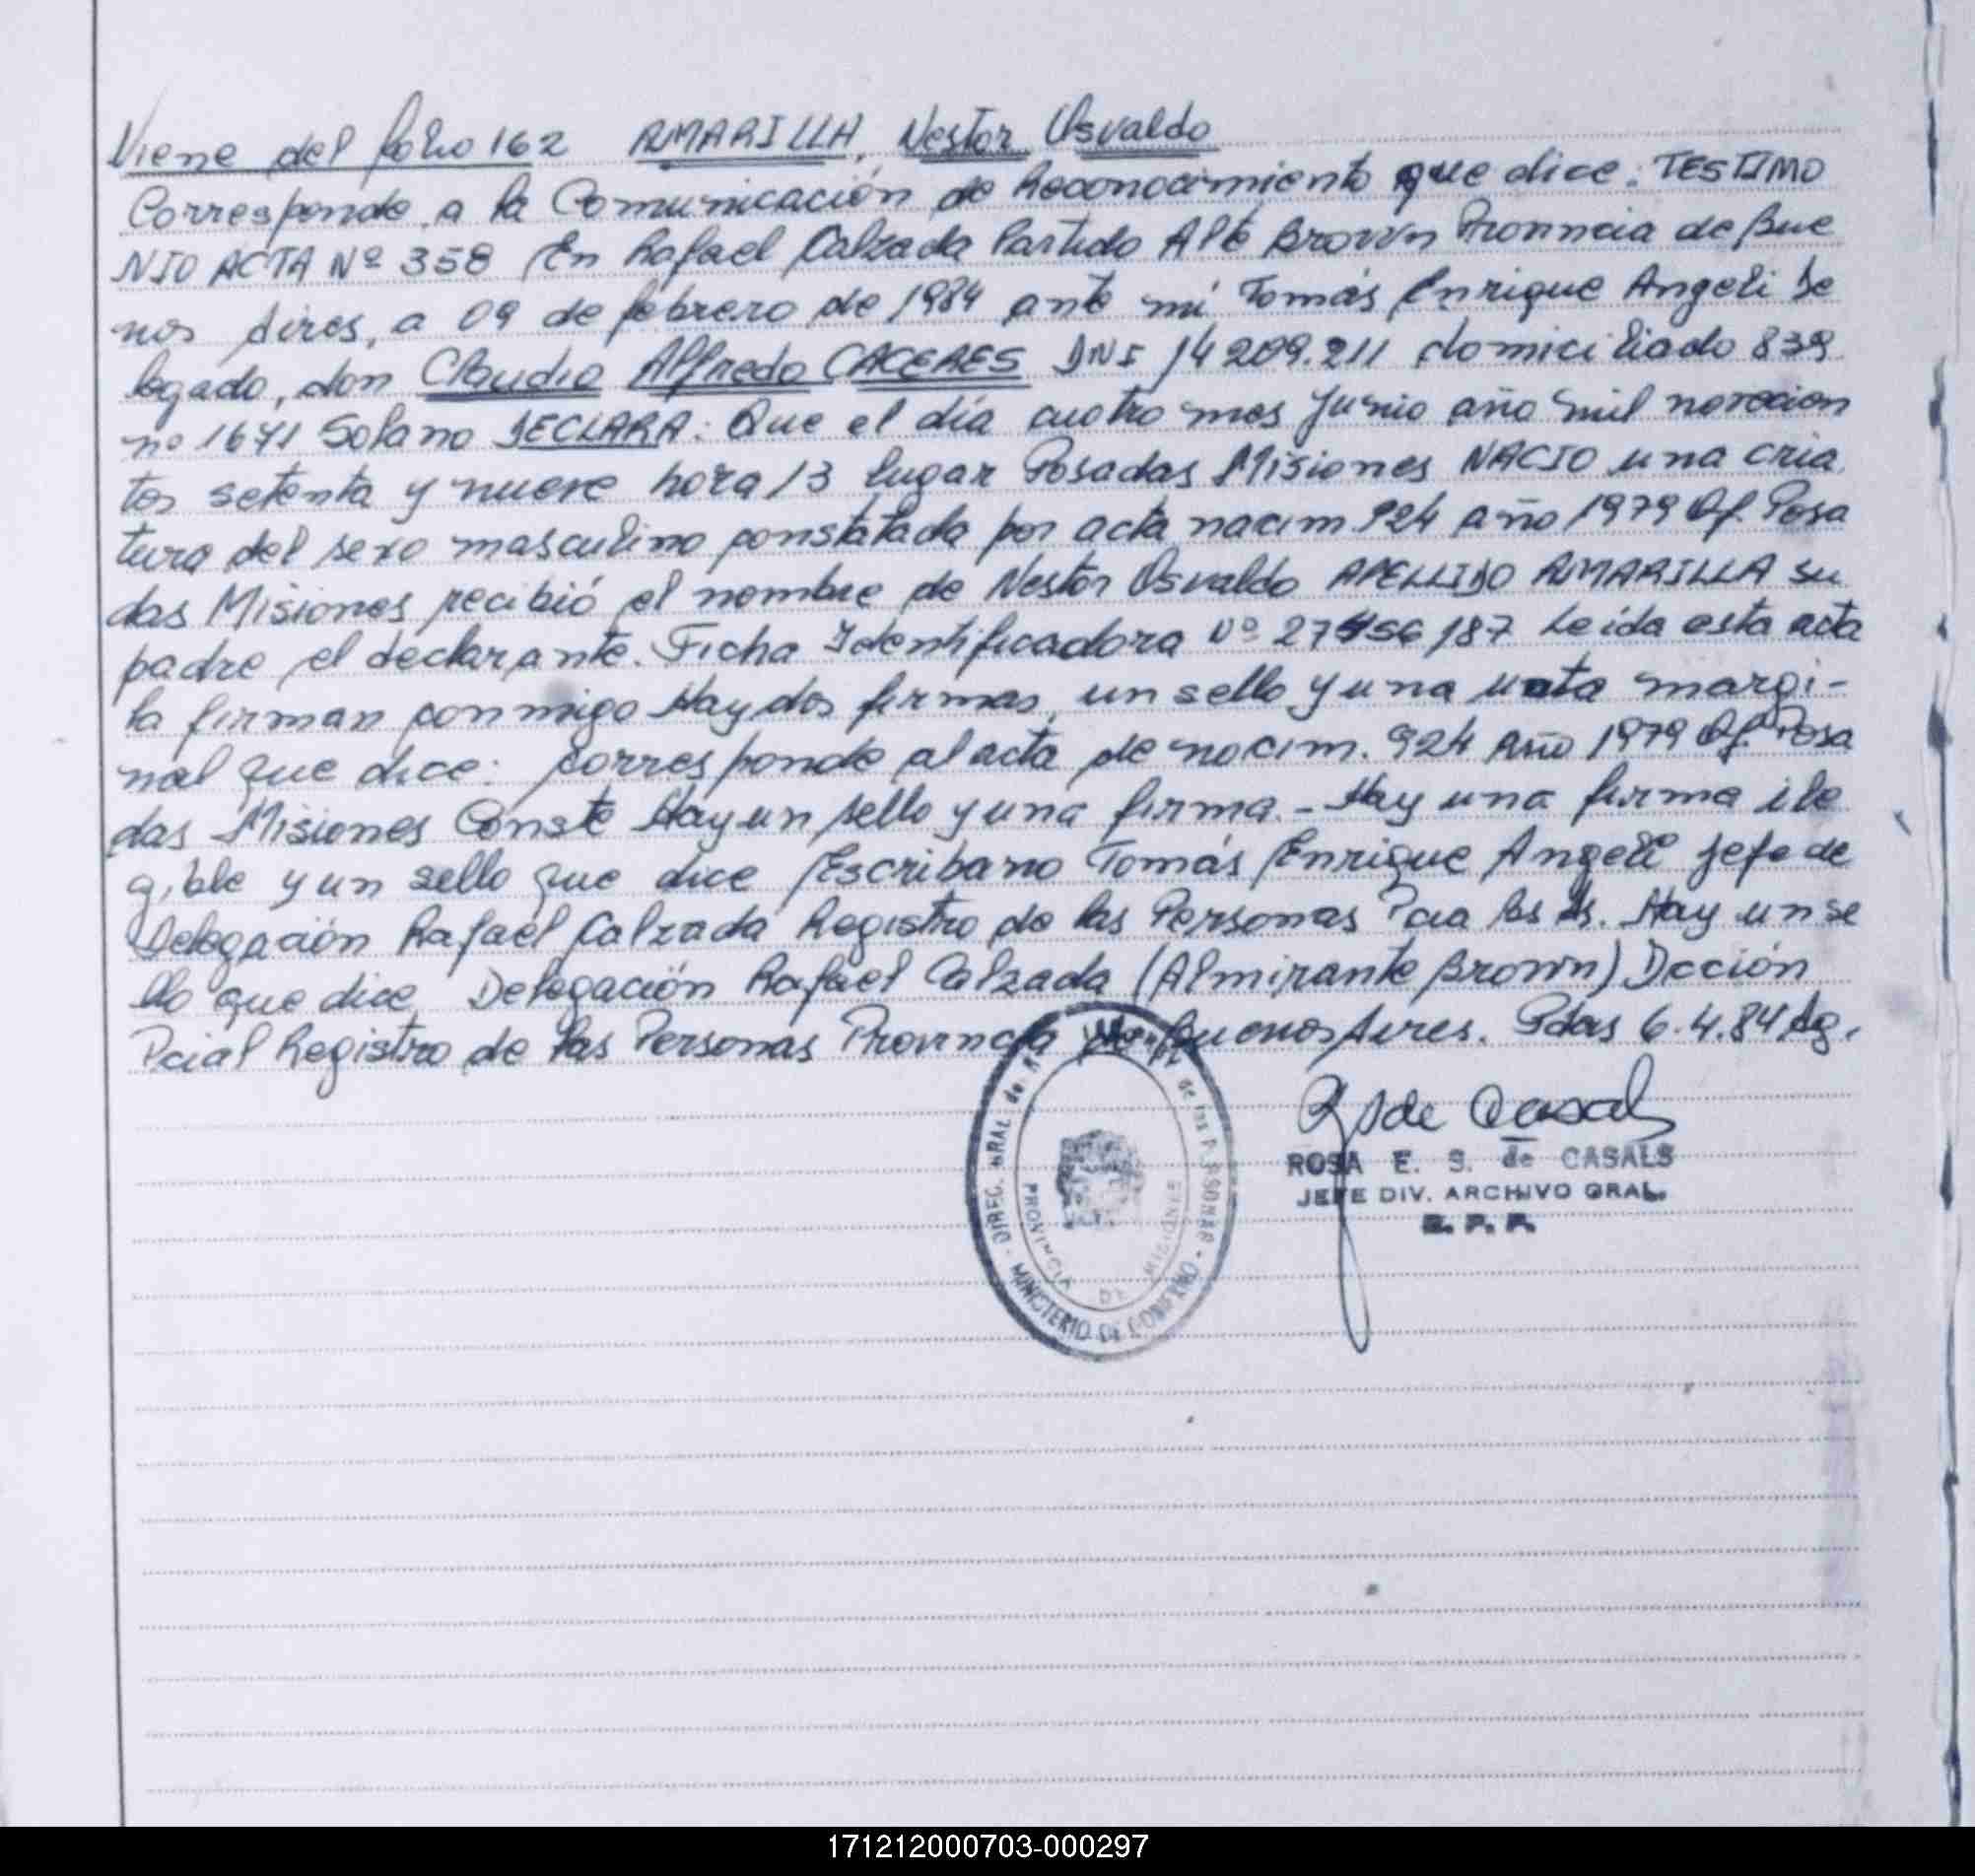 Viene del folio 162 AMARILLA, Nestor Osvaldo
Corresponde a la Comunicación de Reconocimiento que dice: TESTIMO
NIO ACTA Nº 358 En Rafael Calzada Partido Alte Brown Provincia de Bue
nos Aires, a 09 de febrero de 1984 ante mí Tomás Enrique Angeli De
legado, don Claudio Alfredo CACERES DNI 14209.211 domiciliado 839
nº 1671 Solano DECLARA: Que el día cuatro mes Junio año mil novecien
tos setenta y nueve hora 13 lugar Posadas Misiones NACIO una cria
tura del sexo masculino constatada por acta nacim 924 año 1979 Of. Posa
das Misiones recibió el nombre de Nestor Osvaldo APELLIDO AMARILLA su
padre el declarante. Ficha Identificadora Nº 27456187 Leída esta acta
la firman conmigo Hay dos firmas, un sello y una nota margi-
nal que dice: Corresponde al acta de nacim. 924 Año 1979 Of. Posa
das Misiones Conste Hay un sello y una firma.- Hay una firma ile
gible y un sello que dice Escribano Tomás Enrique Angeli Jefe de
Delegación Rafael Calzada Registro de las Personas Pcia Bs As. Hay un se
llo que dice, Delegación Rafael Calzada (Almirante Brown) Dcción
Pcial Registro de las Personas Provincia de Buenos Aires. Pdas 6.4.84 Ag.
DIREC. GRAL de de las PERSONAS - MINISTERIO DE GOBIERNO -
PROVINCIA DE MISIONES
R S de Casals
ROSA E. S. de CASALS
JEFE DIV. ARCHIVO GRAL.
R. P. P.
171212000703-000297